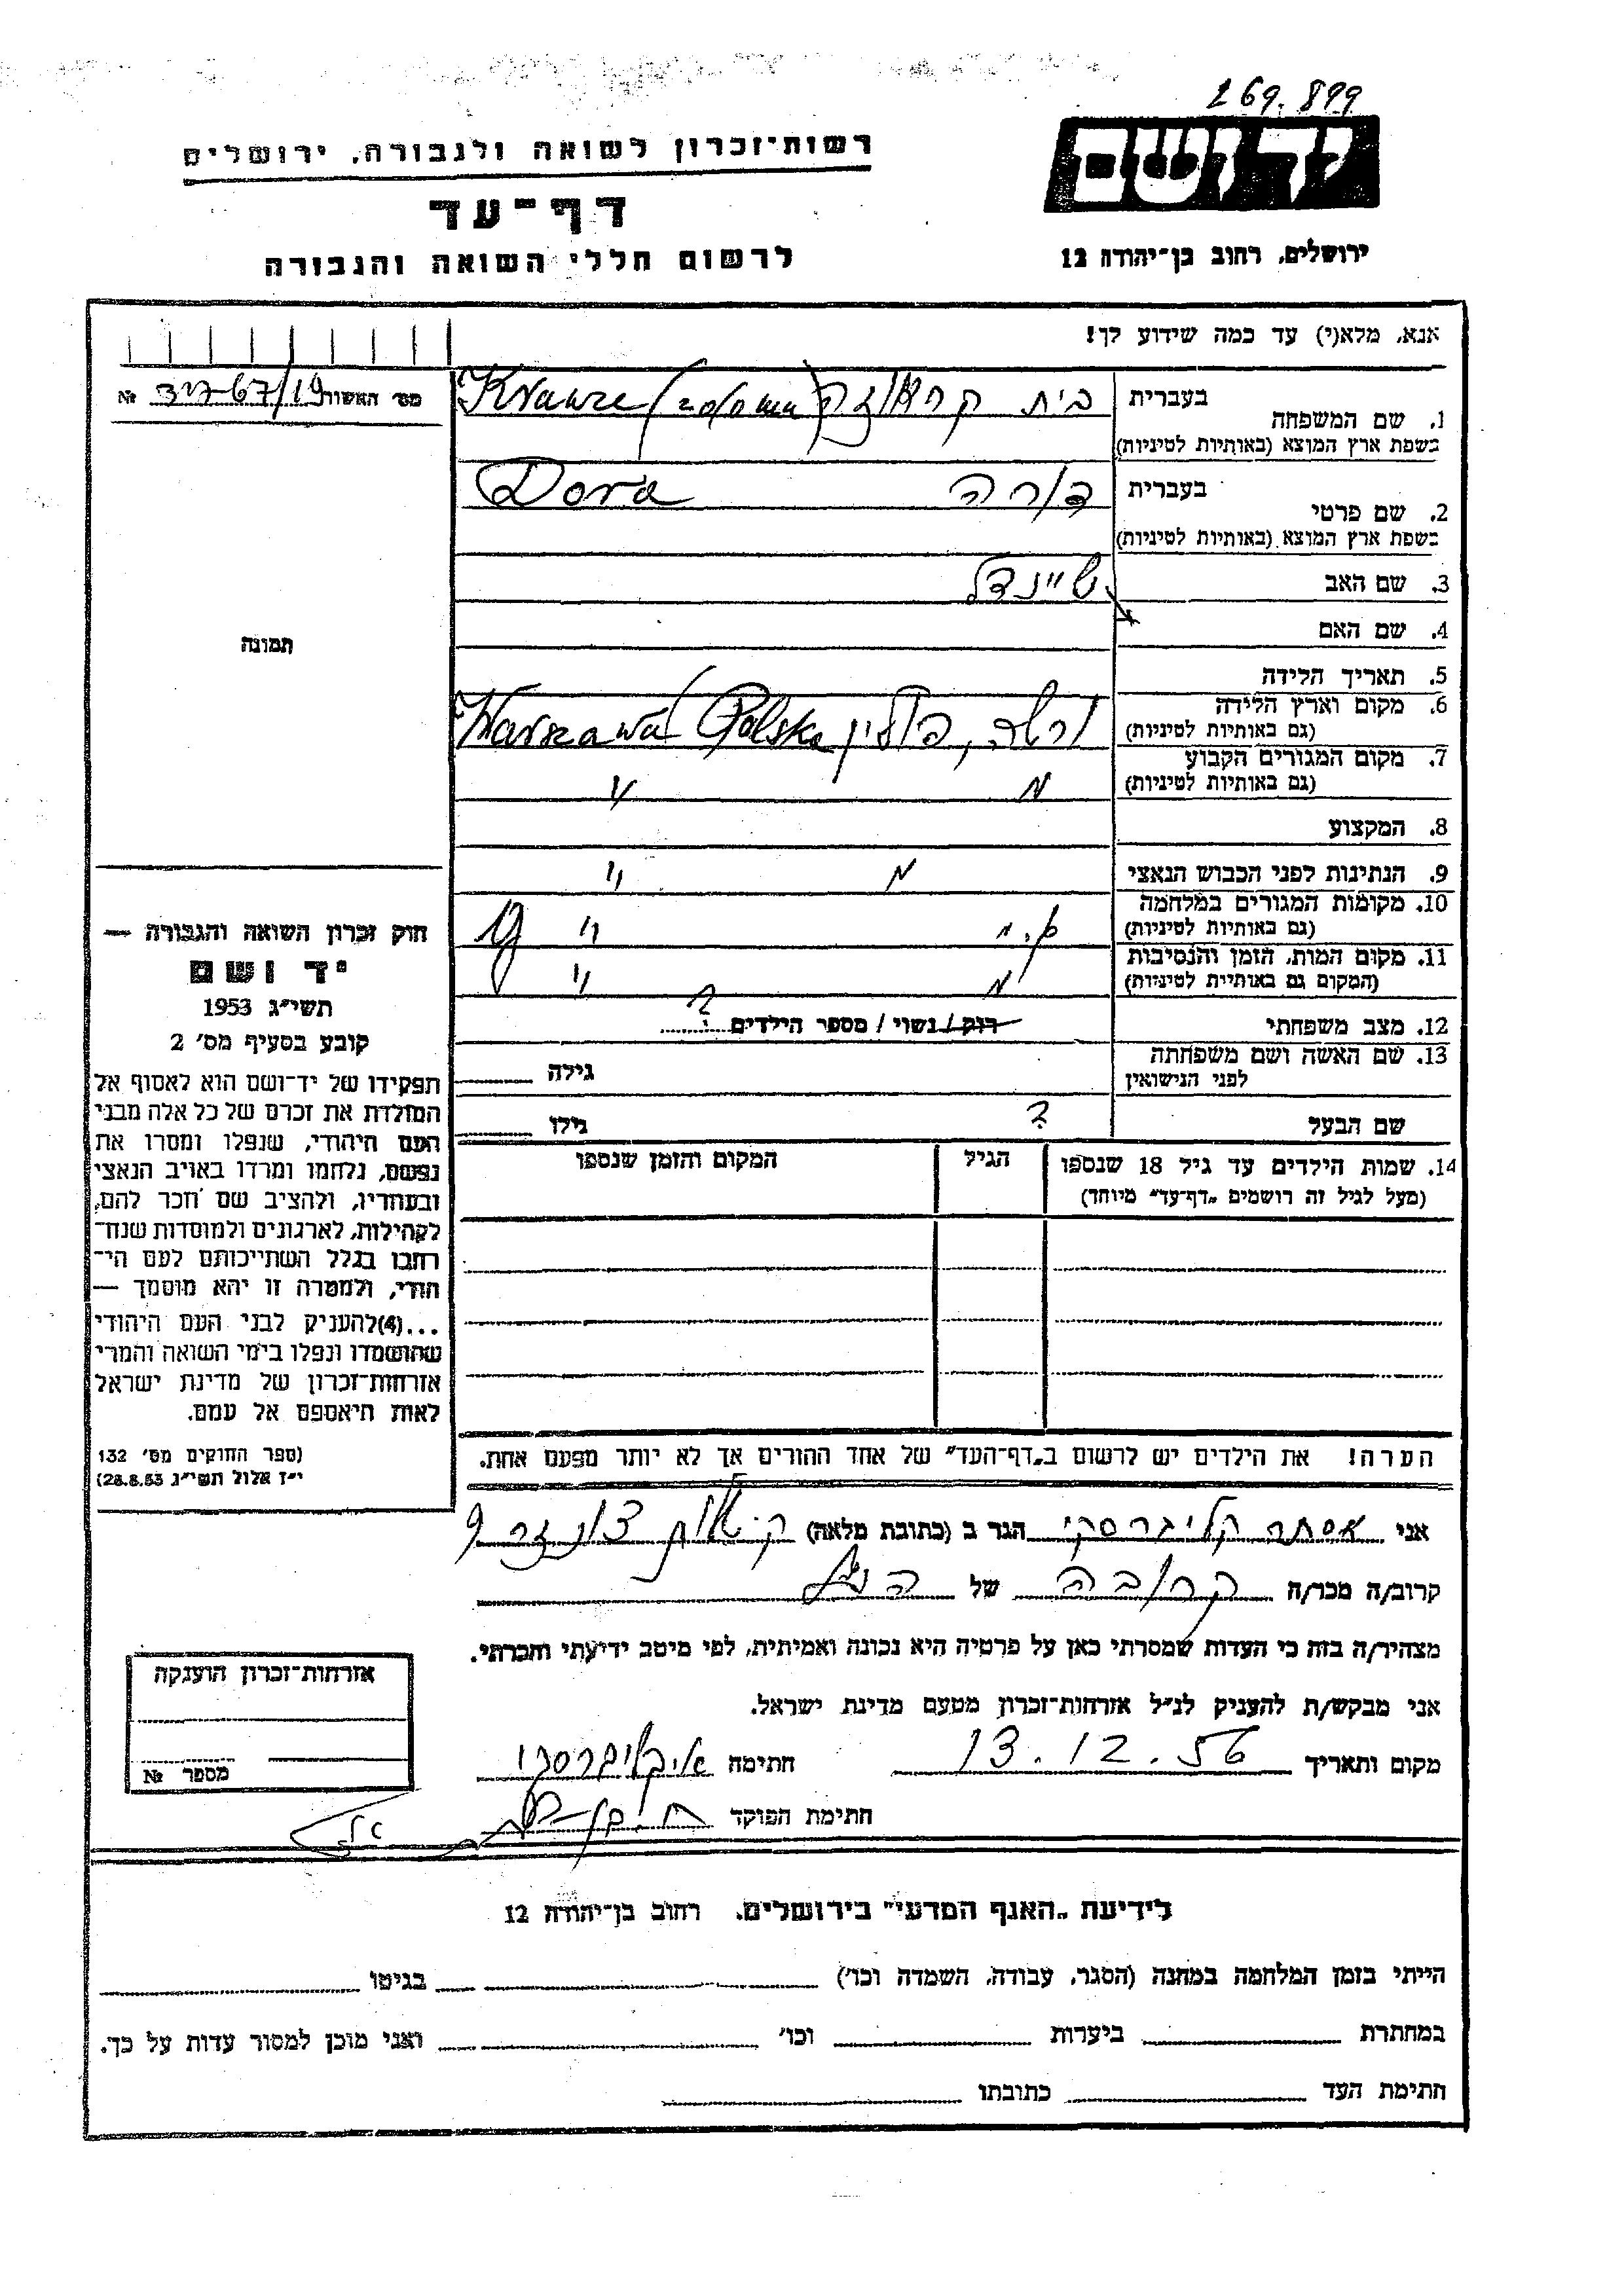 269.899
ידושם
רשות־זכרון לשואה ולגבורה, ירושלים
דף־עד
לרשום חללי השואה והגבורה
ירושלים, רחוב בן־יהודה 12
אנא, מלא(י) עד כמה שידוע לך!
מס׳ האשור №
1. שם המשפחה בעברית בית קראוזה Krauze
בשפת ארץ המוצא (באותיות לטיניות)
2. שם פרטי בעברית דורה Dora
בשפת ארץ המוצא (באותיות לטיניות)
3. שם האב שיינדל
4. שם האם
5. תאריך הלידה
6. מקום וארץ הלידה ורשה, פולין Warszawa Polska
(גם באותיות לטיניות)
7. מקום המגורים הקבוע
(גם באותיות לטיניות)
8. המקצוע
9. הנתינות לפני הכבוש הנאצי
10. מקומות המגורים במלחמה
(גם באותיות לטיניות)
11. מקום המות, הזמן והנסיבות
(המקום גם באותיות לטיניות)
12. מצב משפחתי רוק / נשוי / מספר הילדים ?
13. שם האשה ושם משפחתה גילה
לפני הנישואין
שם הבעל ? גילו
14. שמות הילדים עד גיל 18 שנספו הגיל המקום והזמן שנספו
(מעל לגיל זה רושמים „דף־עד״ מיוחד)
הערה! את הילדים יש לרשום ב„דף־העד״ של אחד ההורים אך לא יותר מפעם אחת.
תמונה
חוק זכרון השואה והגבורה —
יד ושם
תשי״ג 1953
קובע בסעיף מס׳ 2
תפקידו של יד־ושם הוא לאסוף אל
המולדת את זכרם של כל אלה מבני
העם היהודי, שנפלו ומסרו את
נפשם, נלחמו ומרדו באויב הנאצי
ובעוזריו, ולהציב שם וזכר להם,
לקהילות, לארגונים ולמוסדות שנח־
רבו בגלל השתייכותם לעם הי־
הודי, ולמטרה זו יהא מוסמך —
...(4) להעניק לבני העם היהודי
שהושמדו ונפלו בימי השואה והמרי
אזרחות־זכרון של מדינת ישראל
לאות היאספם אל עמם.
(ספר החוקים מס׳ 132
י״ז אלול תשי״ג 28.8.53)
אני אסתר קליגרסקי הגר ב (כתובת מלאה)
קרוב/ה מכר/ה קרובה של הנ״ל
מצהיר/ה בזה כי העדות שמסרתי כאן על פרטיה היא נכונה ואמיתית, לפי מיטב ידיעתי והכרתי.
אני מבקש/ת להעניק לנ״ל אזרחות־זכרון מטעם מדינת ישראל.
מקום ותאריך 13.12.56 חתימה
חתימת הפוקד
אזרחות־זכרון הוענקה
מספר №
לידיעת „האגף המדעי״ בירושלים, רחוב בן־יהודה 12
הייתי בזמן המלחמה במחנה (הסגר, עבודה, השמדה וכו׳) בגיטו
במחתרת ביערות וכו׳ ואני מוכן למסור עדות על כך.
חתימת העד כתובתו